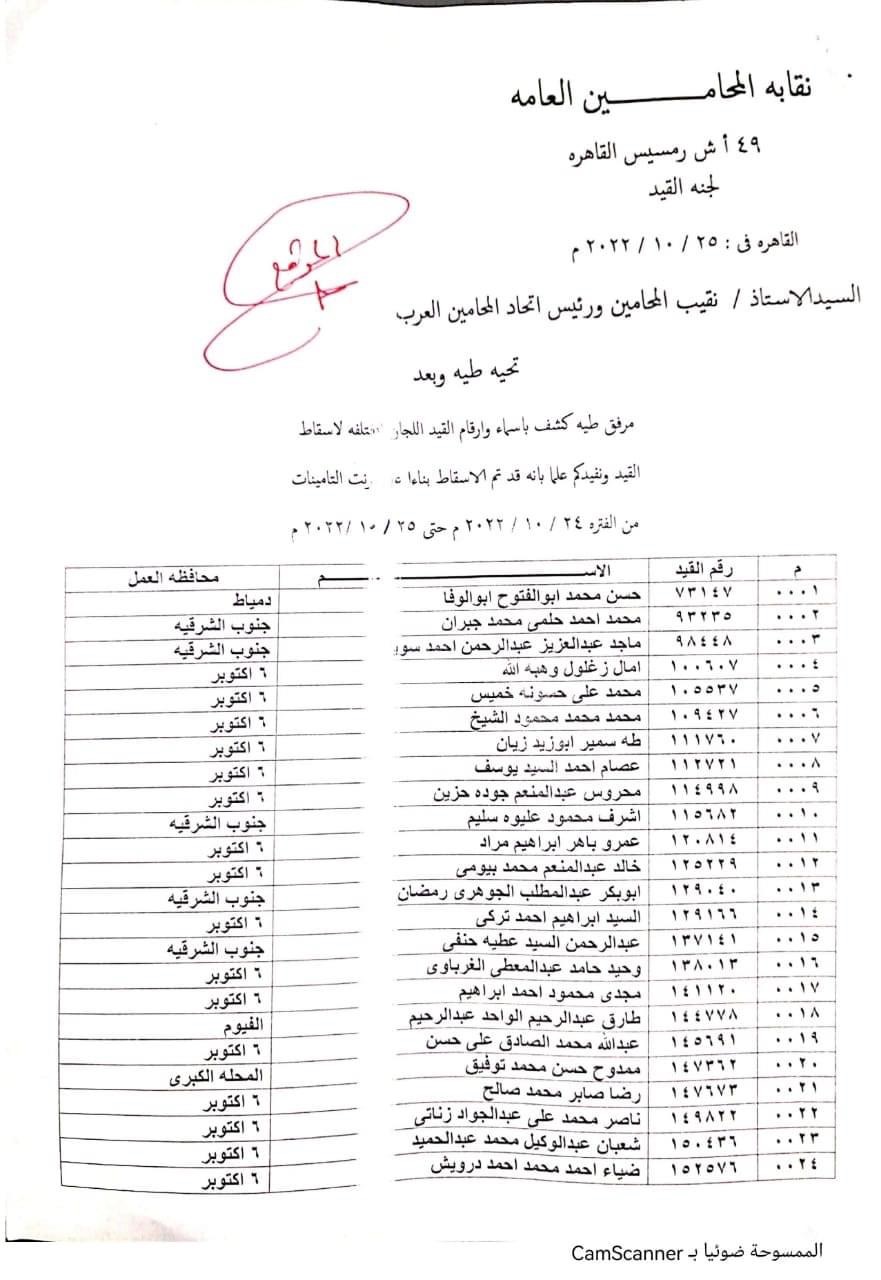 نقابه المحامـــــــــين العامه
٤٩ أ ش رمسيس القاهره
لجنه القيد
القاهره فى : ٢٥ / ١٠ / ٢٠٢٢ م
السيدالاستاذ / نقيب المحامين ورئيس اتحاد المحامين العرب
تحيه طيه وبعد
مرفق طيه كشف باسماء وارقام القيد اللجان لاسقاط
القيد ونفيدكم علما بانه قد تم الاسقاط بناءا التامينات
من الفتره ٢٤ / ١٠ / ٢٠٢٢ م حتى ٢٥ / ١٠ /٢٠٢٢ م
م رقم القيد الاســـــــم محافظه العمل
٠٠٠١ ٧٣١٤٧ حسن محمد ابوالفتوح ابوالوفا دمياط
٠٠٠٢ ٩٣٢٣٥ محمد احمد حلمى محمد جبران جنوب الشرقيه
٠٠٠٣ ٩٨٤٤٨ ماجد عبدالعزيز عبدالرحمن احمد جنوب الشرقيه
٠٠٠٤ ١٠٠٦٠٧ امال زغلول وهبه الله ٦ اكتوبر
٠٠٠٥ ١٠٥٥٣٧ محمد على حسونه خميس ٦ اكتوبر
٠٠٠٦ ١٠٩٤٢٧ محمد محمد محمود الشيخ ٦ اكتوبر
٠٠٠٧ ١١١٧٦٠ طه سمير ابوزيد زيان ٦ اكتوبر
٠٠٠٨ ١١٢٧٢١ عصام احمد السيد يوسف ٦ اكتوبر
٠٠٠٩ ١١٤٩٩٨ محروس عبدالمنعم جوده حزين ٦ اكتوبر
٠٠١٠ ١١٥٦٨٢ اشرف محمود عليوه سليم جنوب الشرقيه
٠٠١١ ١٢٠٨١٤ عمرو باهر ابراهيم مراد ٦ اكتوبر
٠٠١٢ ١٢٥٢٢٩ خالد عبدالمنعم محمد بيومى ٦ اكتوبر
٠٠١٣ ١٢٩٠٤٠ ابوبكر عبدالمطلب الجوهرى رمضان جنوب الشرقيه
٠٠١٤ ١٢٩١٦٦ السيد ابراهيم احمد تركى ٦ اكتوبر
٠٠١٥ ١٣٧١٤١ عبدالرحمن السيد عطيه حنفى جنوب الشرقيه
٠٠١٦ ١٣٨٠١٣ وحيد حامد عبدالمعطى الغرباوى ٦ اكتوبر
٠٠١٧ ١٤١١٢٠ مجدى محمود احمد ابراهيم ٦ اكتوبر
٠٠١٨ ١٤٤٧٧٨ طارق عبدالرحيم الواحد عبدالرحيم الفيوم
٠٠١٩ ١٤٥٦٩١ عبدالله محمد الصادق على حسن ٦ اكتوبر
٠٠٢٠ ١٤٧٣٦٢ ممدوح حسن محمد توفيق المحله الكبرى
٠٠٢١ ١٤٧٦٧٣ رضا صابر محمد صالح ٦ اكتوبر
٠٠٢٢ ١٤٩٨٢٢ ناصر محمد على عبدالجواد زناتى ٦ اكتوبر
٠٠٢٣ ١٥٠٤٣٦ شعبان عبدالوكيل محمد عبدالحميد ٦ اكتوبر
٠٠٢٤ ١٥٢٥٧٦ ضياء احمد محمد احمد درويش ٦ اكتوبر
الممسوحة ضوئيا بـ CamScanner